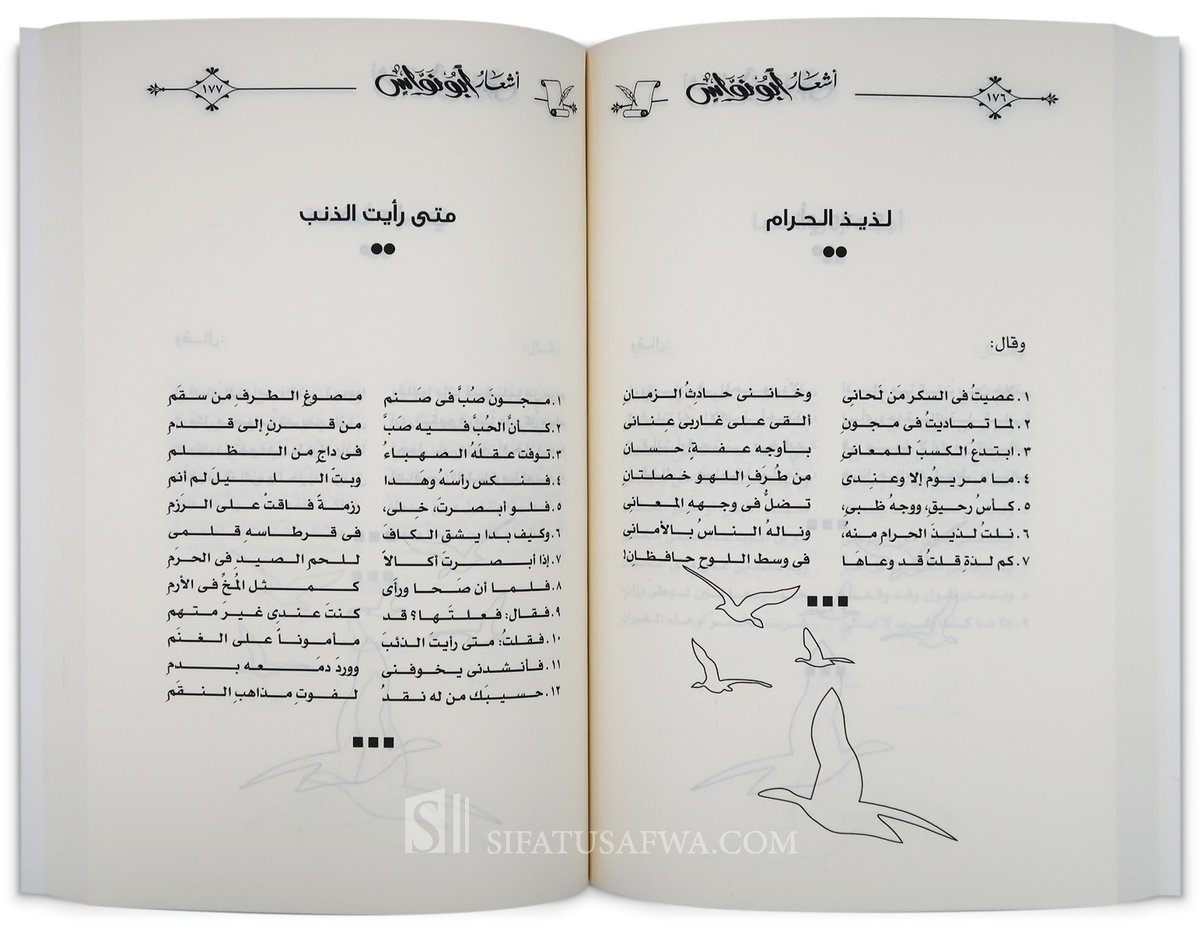 أشعار أبو نواس
١٧٦
لذيذ الحرام
وقال:
١. عصيتُ فى السكر مَن لحانى وخاننى حادثُ الزمانِ
٢. لما تماديتُ فى مجونٍ ألقى على غاربى عنانى
٣. ابتدعُ الكسبَ للمعانى بأوجه عفةٍ، حسان
٤. ما مر يومٌ إلا وعندى من طُرَفِ اللهو خصلتان
٥. كأسُ رحيقٍ، ووجه ظبىٍ، تضلُّ فى وجههِ المعانى
٦. نلتُ لذيذَ الحرام منهُ، ونالهُ الناسُ بالأمانى
٧. كم لذةٍ قلتُ قد وعاهَا فى وسط اللوحِ حافظانِ!
أشعار أبو نواس
١٧٧
متى رأيت الذنب
١. مجونَ صُبَّ فى صَنم مصوغِ الطرفِ من سقَم
٢. كأنَّ الحُبَّ فيه صَبَّ من قرنٍ إلى قدم
٣. توفت عقلَهُ الصهباءُ فى داجٍ من الظلم
٤. فنكس رأسَهُ وهذا وبتّ الليلَ لم أنم
٥. فلو أبصرتَ، خلى، رزمةً فاقتْ على الرزم
٦. وكيف بدا يشق الكافَ فى قرطاسهِ قلمى
٧. إذا أبصرتَ أكالاً للحم الصيدِ فى الحرَم
٨. فلما أن صَحا ورأى كمثل المُخِّ فى الأرم
٩. فقال: فعلتَها؟ قد كنتَ عندى غيرَ متهم
١٠. فقلتُ: متى رأيتَ الذئبَ مأموناً على الغنَم
١١. فأنشدنى يخوفنى ووردَ دمعَه بدم
١٢. حسيبَك من له نقدُ لفوتِ مذاهبِ النقَم
SIFATUSAFWA.COM